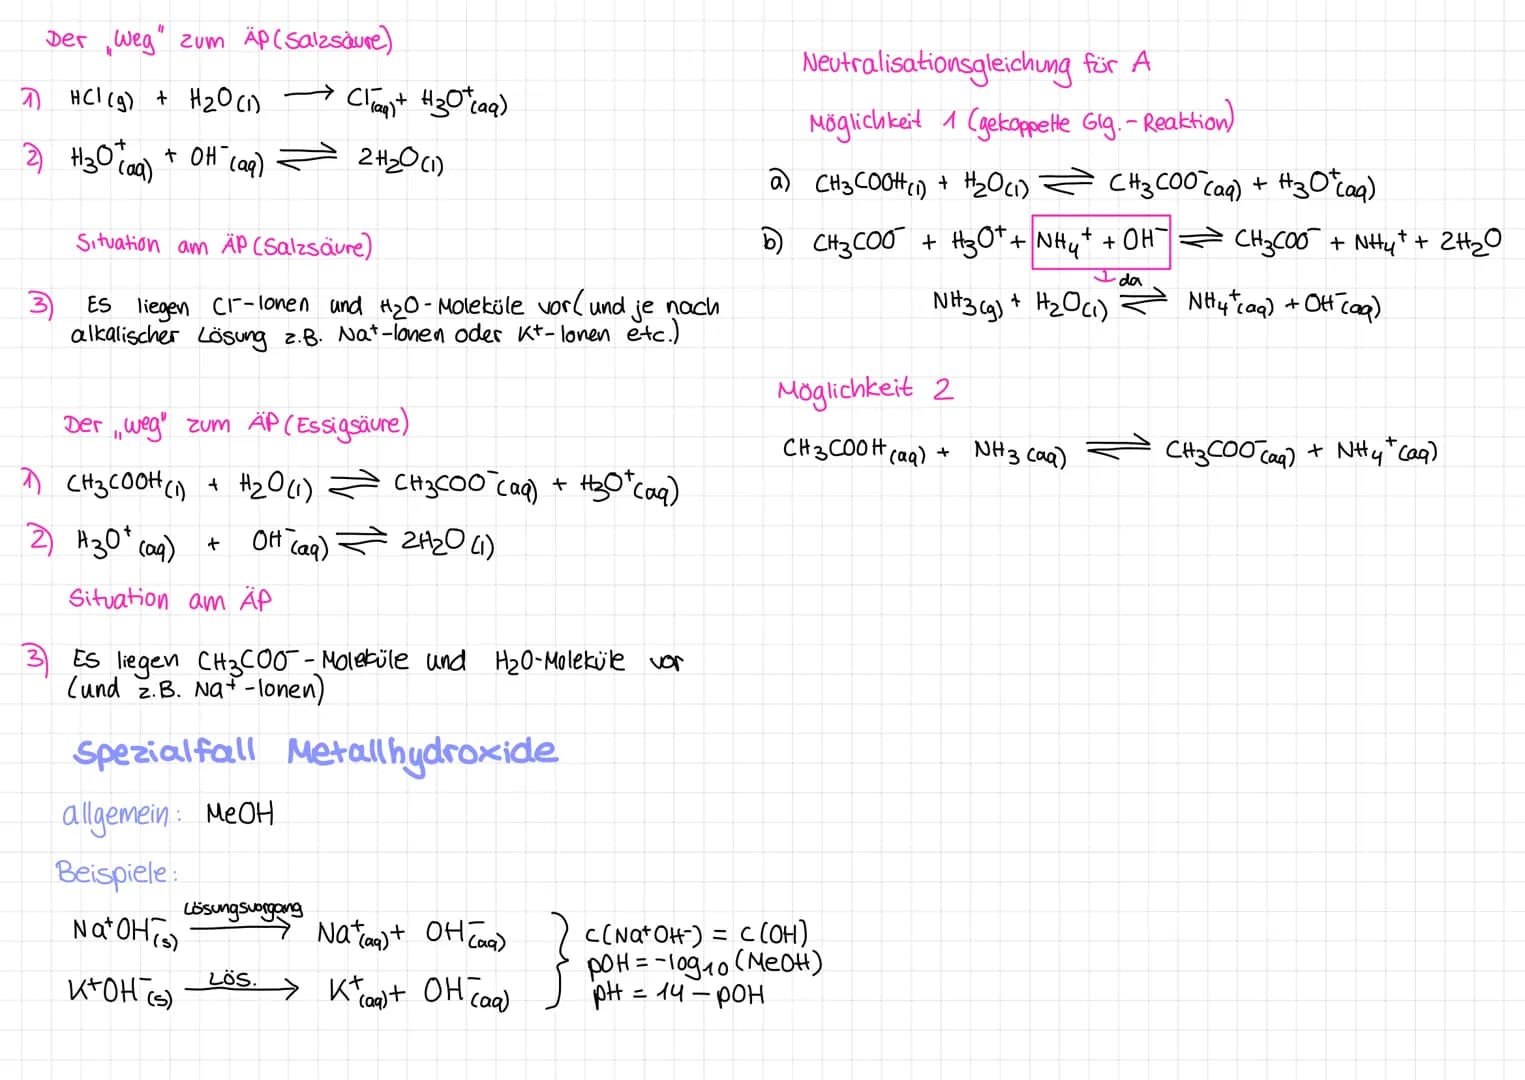 Der „Weg" zum ÄP (Salzsäure)
1) HCl (g) + H₂O (l) ⟶ Cl⁻(aq) + H₃O⁺(aq)
2) H₃O⁺(aq) + OH⁻(aq) ⇌ 2H₂O (l)
Situation am ÄP (Salzsäure)
3) Es liegen Cl⁻-Ionen und H₂O-Moleküle vor (und je nach
alkalischer Lösung z.B. Na⁺-Ionen oder K⁺-Ionen etc.)
Der „Weg" zum ÄP (Essigsäure)
1) CH₃COOH (l) + H₂O (l) ⇌ CH₃COO⁻(aq) + H₃O⁺(aq)
2) H₃O⁺(aq) + OH⁻(aq) ⇌ 2H₂O (l)
Situation am ÄP
3) Es liegen CH₃COO⁻-Moleküle und H₂O-Moleküle vor
(und z.B. Na⁺-Ionen)
Spezialfall Metallhydroxide
allgemein: MeOH
Beispiele:
Na⁺OH⁻(s) Lösungsvorgang ⟶ Na⁺(aq) + OH⁻(aq)
K⁺OH⁻(s) Lös. ⟶ K⁺(aq) + OH⁻(aq)
c(Na⁺OH⁻) = c(OH)
pOH = -log₁₀(MeOH)
pH = 14 - pOH
Neutralisationsgleichung für A
Möglichkeit 1 (gekoppelte Glg.-Reaktion)
a) CH₃COOH(l) + H₂O(l) ⇌ CH₃COO⁻(aq) + H₃O⁺(aq)
b) CH₃COO⁻ + H₃O⁺ + NH₄⁺ + OH⁻ ⇌ CH₃COO⁻ + NH₄⁺ + 2H₂O
↓ da
NH₃(g) + H₂O(l) ⇌ NH₄⁺(aq) + OH⁻(aq)
Möglichkeit 2
CH₃COOH(aq) + NH₃(aq) ⇌ CH₃COO⁻(aq) + NH₄⁺(aq)